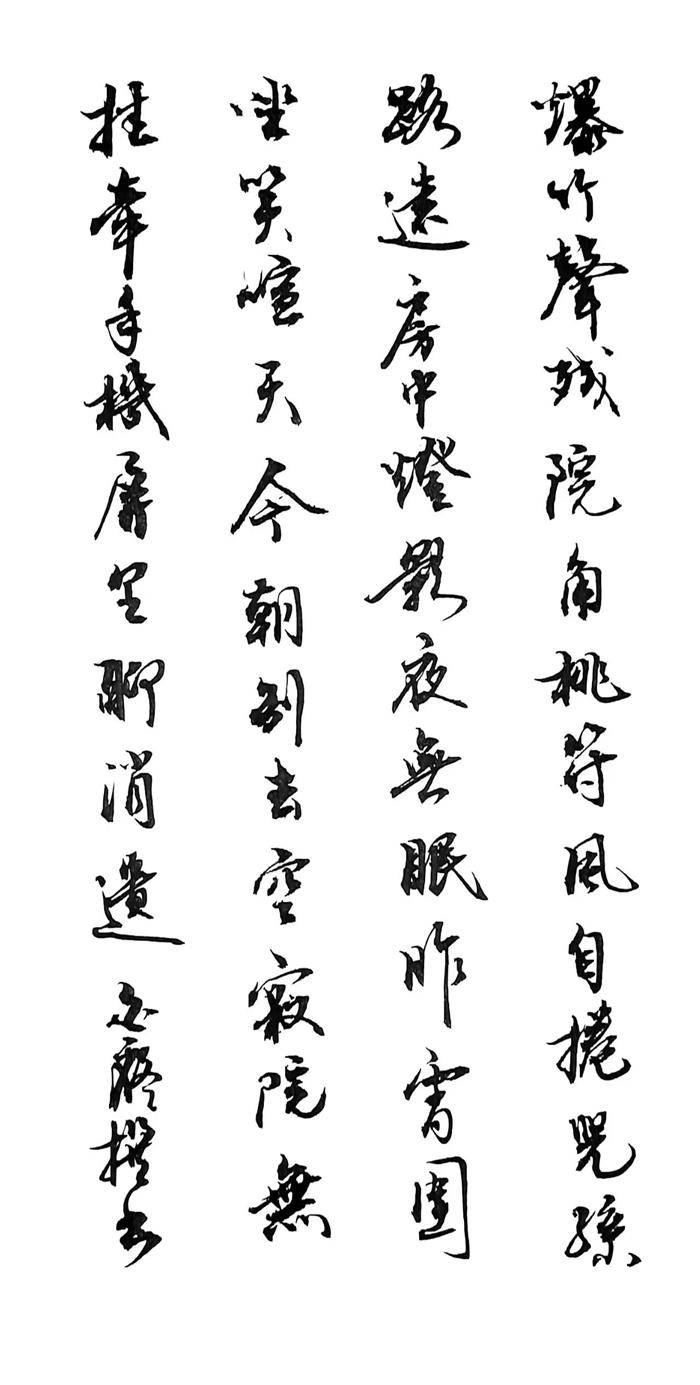 爆竹聲殘院角桃符風自捲兒孫
路遠房中燈影夜無眠昨宵圍
坐笑喧天今朝別去空寂院無
挂牽手機屏里聊消遣 撰書